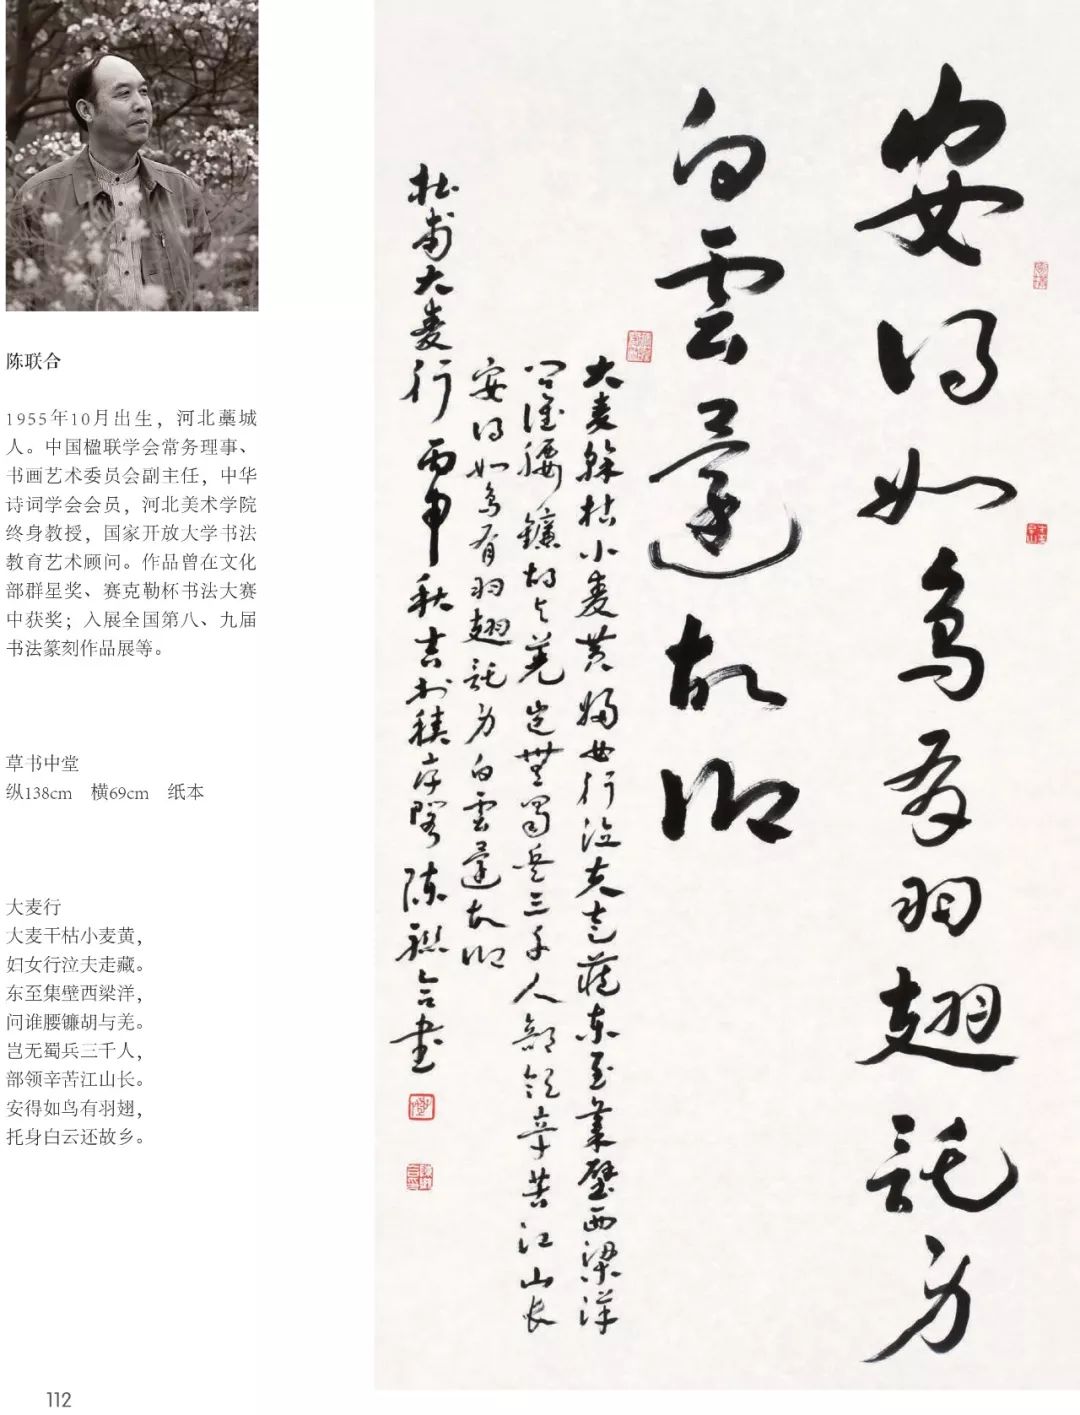 陈联合
1955年10月出生，河北藁城
人。中国楹联学会常务理事、
书画艺术委员会副主任，中华
诗词学会会员，河北美术学院
终身教授，国家开放大学书法
教育艺术顾问。作品曾在文化
部群星奖、赛克勒杯书法大赛
中获奖；入展全国第八、九届
书法篆刻作品展等。
草书中堂
纵138cm 横69cm 纸本
大麦行
大麦干枯小麦黄，
妇女行泣夫走藏。
东至集壁西梁洋，
问谁腰镰胡与羌。
岂无蜀兵三千人，
部领辛苦江山长。
安得如鸟有羽翅，
托身白云还故乡。
112
安得如鳥有羽翅託身
白雲還故鄉
大麦榦枯小麦黄婦女行泣夫走藏東至集壁西梁洋
問誰腰鐮胡与羌豈無蜀兵三千人部領辛苦江山長
安得如鳥有羽翅託身白雲還故鄉
杜甫大麦行丙申秋吉於積存閣陳聯合書